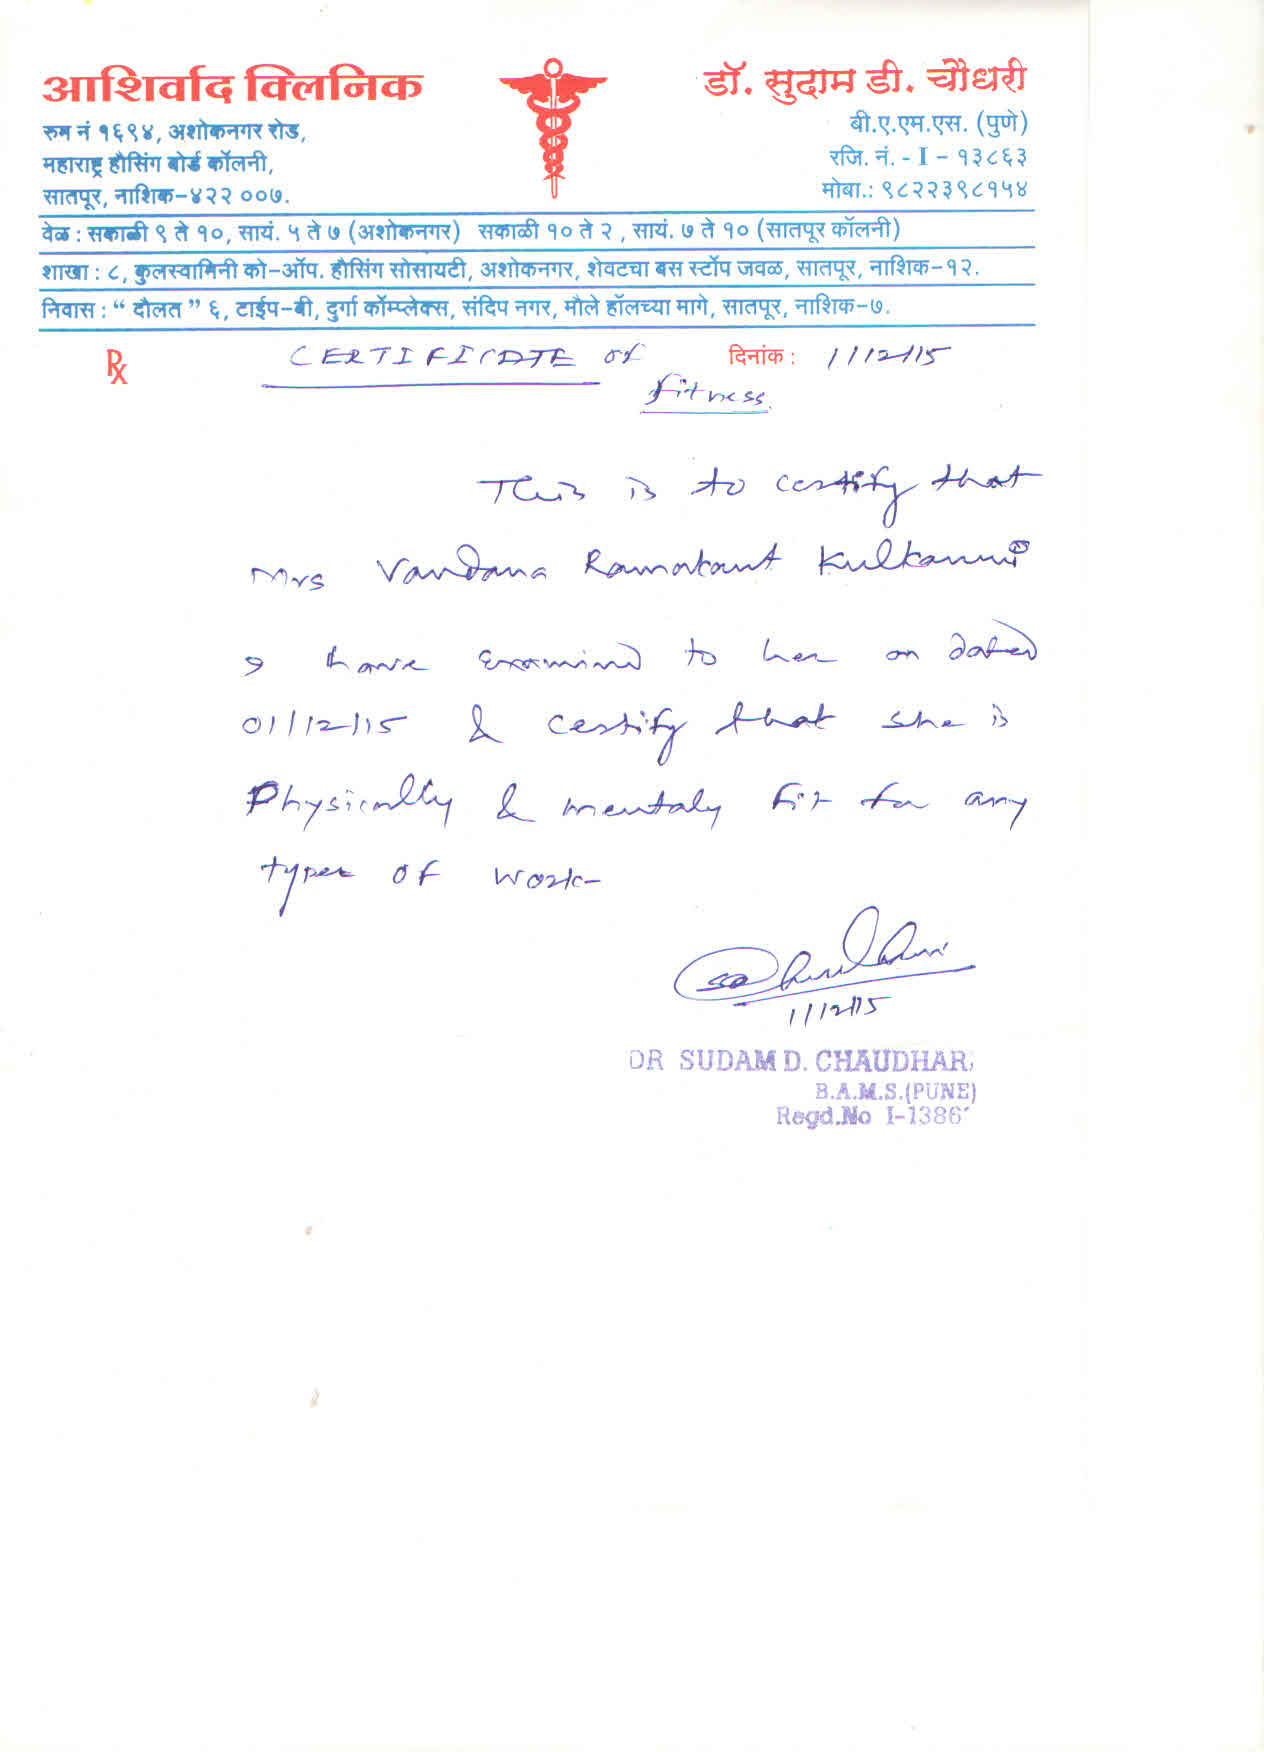 आशिर्वाद क्लिनिक
रुम नं १६९४, अशोकनगर रोड,
महाराष्ट्र हौसिंग बोर्ड कॉलनी,
सातपूर, नाशिक-४२२ ००७.
डॉ. सुदाम डी. चौधरी
बी.ए.एम.एस. (पुणे)
रजि. नं. - I - १३८६३
मोबा.: ९८२२३९८१५४
वेळ : सकाळी ९ ते १०, सायं. ५ ते ७ (अशोकनगर) सकाळी १० ते २ , सायं. ७ ते १० (सातपूर कॉलनी)
शाखा : ८, कुलस्वामिनी को-ऑप. हौसिंग सोसायटी, अशोकनगर, शेवटचा बस स्टॉप जवळ, सातपूर, नाशिक-१२.
निवास : “ दौलत ” ६, टाईप-बी, दुर्गा कॉम्प्लेक्स, संदिप नगर, मौले हॉलच्या मागे, सातपूर, नाशिक-७.
℞ CERTIFICATE of दिनांक : 1/12/15
fitness.
This is to certify that
Mrs Vandana Ramakant Kulkarni
I have examined to her on dated
01/12/15 & certify that she is
Physically & mentaly fit for any
types of work-
1/12/15
DR SUDAM D. CHAUDHARI
B.A.M.S.(PUNE)
Regd.No I-1386